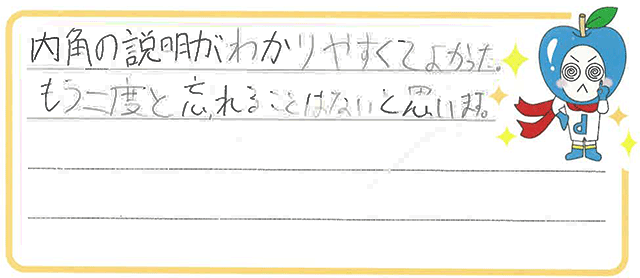 内角の説明がわかりやすくてよかった。
もう二度と忘れることはないと思います。
d